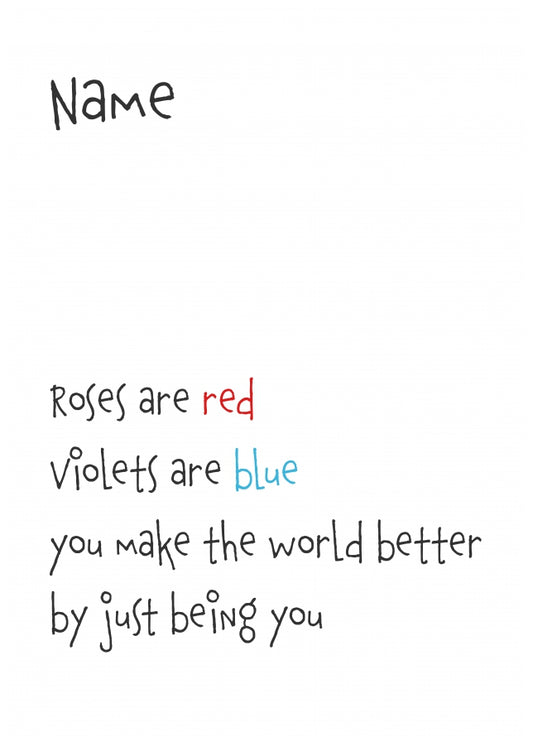 Name
Roses are red
Violets are blue
you make the world better
by just being you